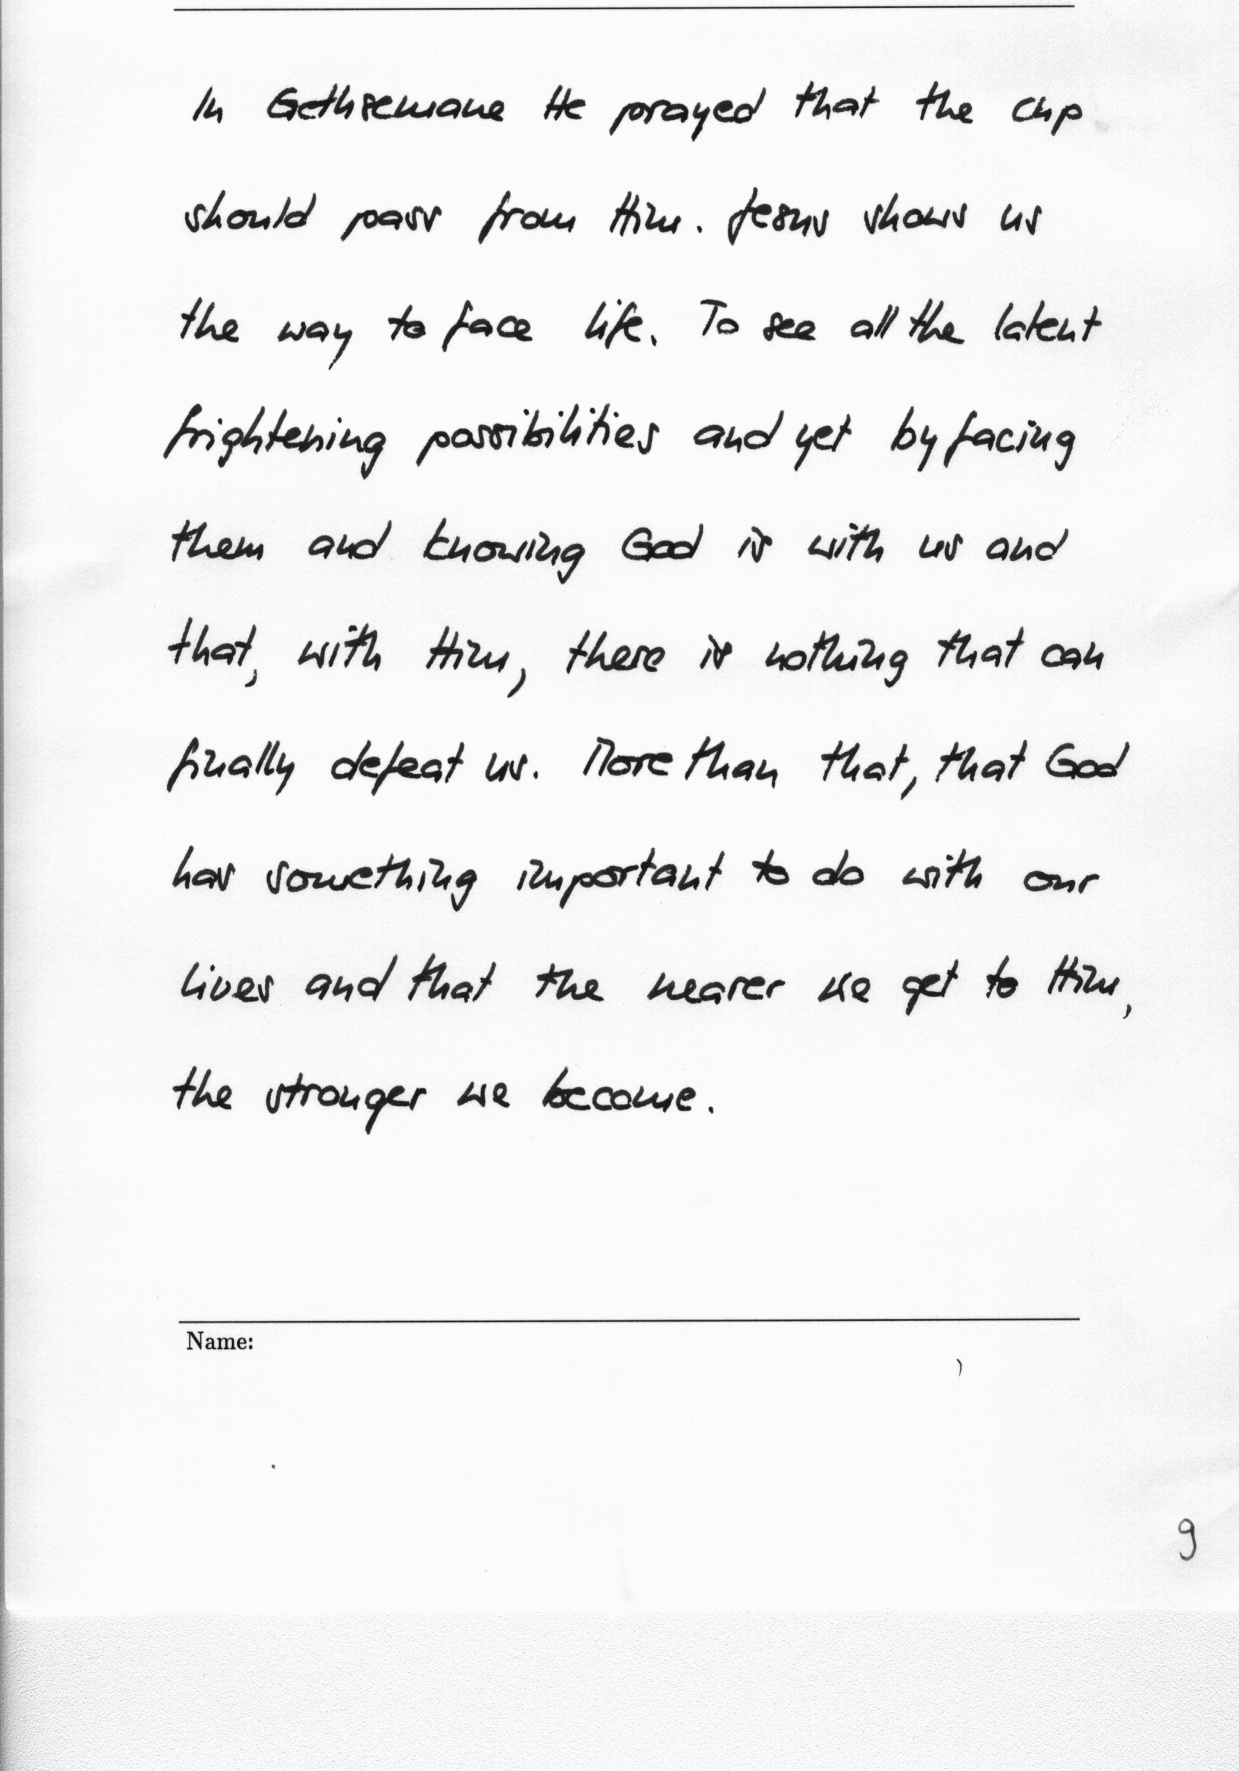 In Gethsemane He prayed that the cup
should pass from Him. Jesus shows us
the way to face life. To see all the latent
frightening possibilities and yet by facing
them and knowing God is with us and
that, with Him, there is nothing that can
finally defeat us. More than that, that God
has something important to do with our
lives and that the nearer we get to Him,
the stronger we become.
Name:
9